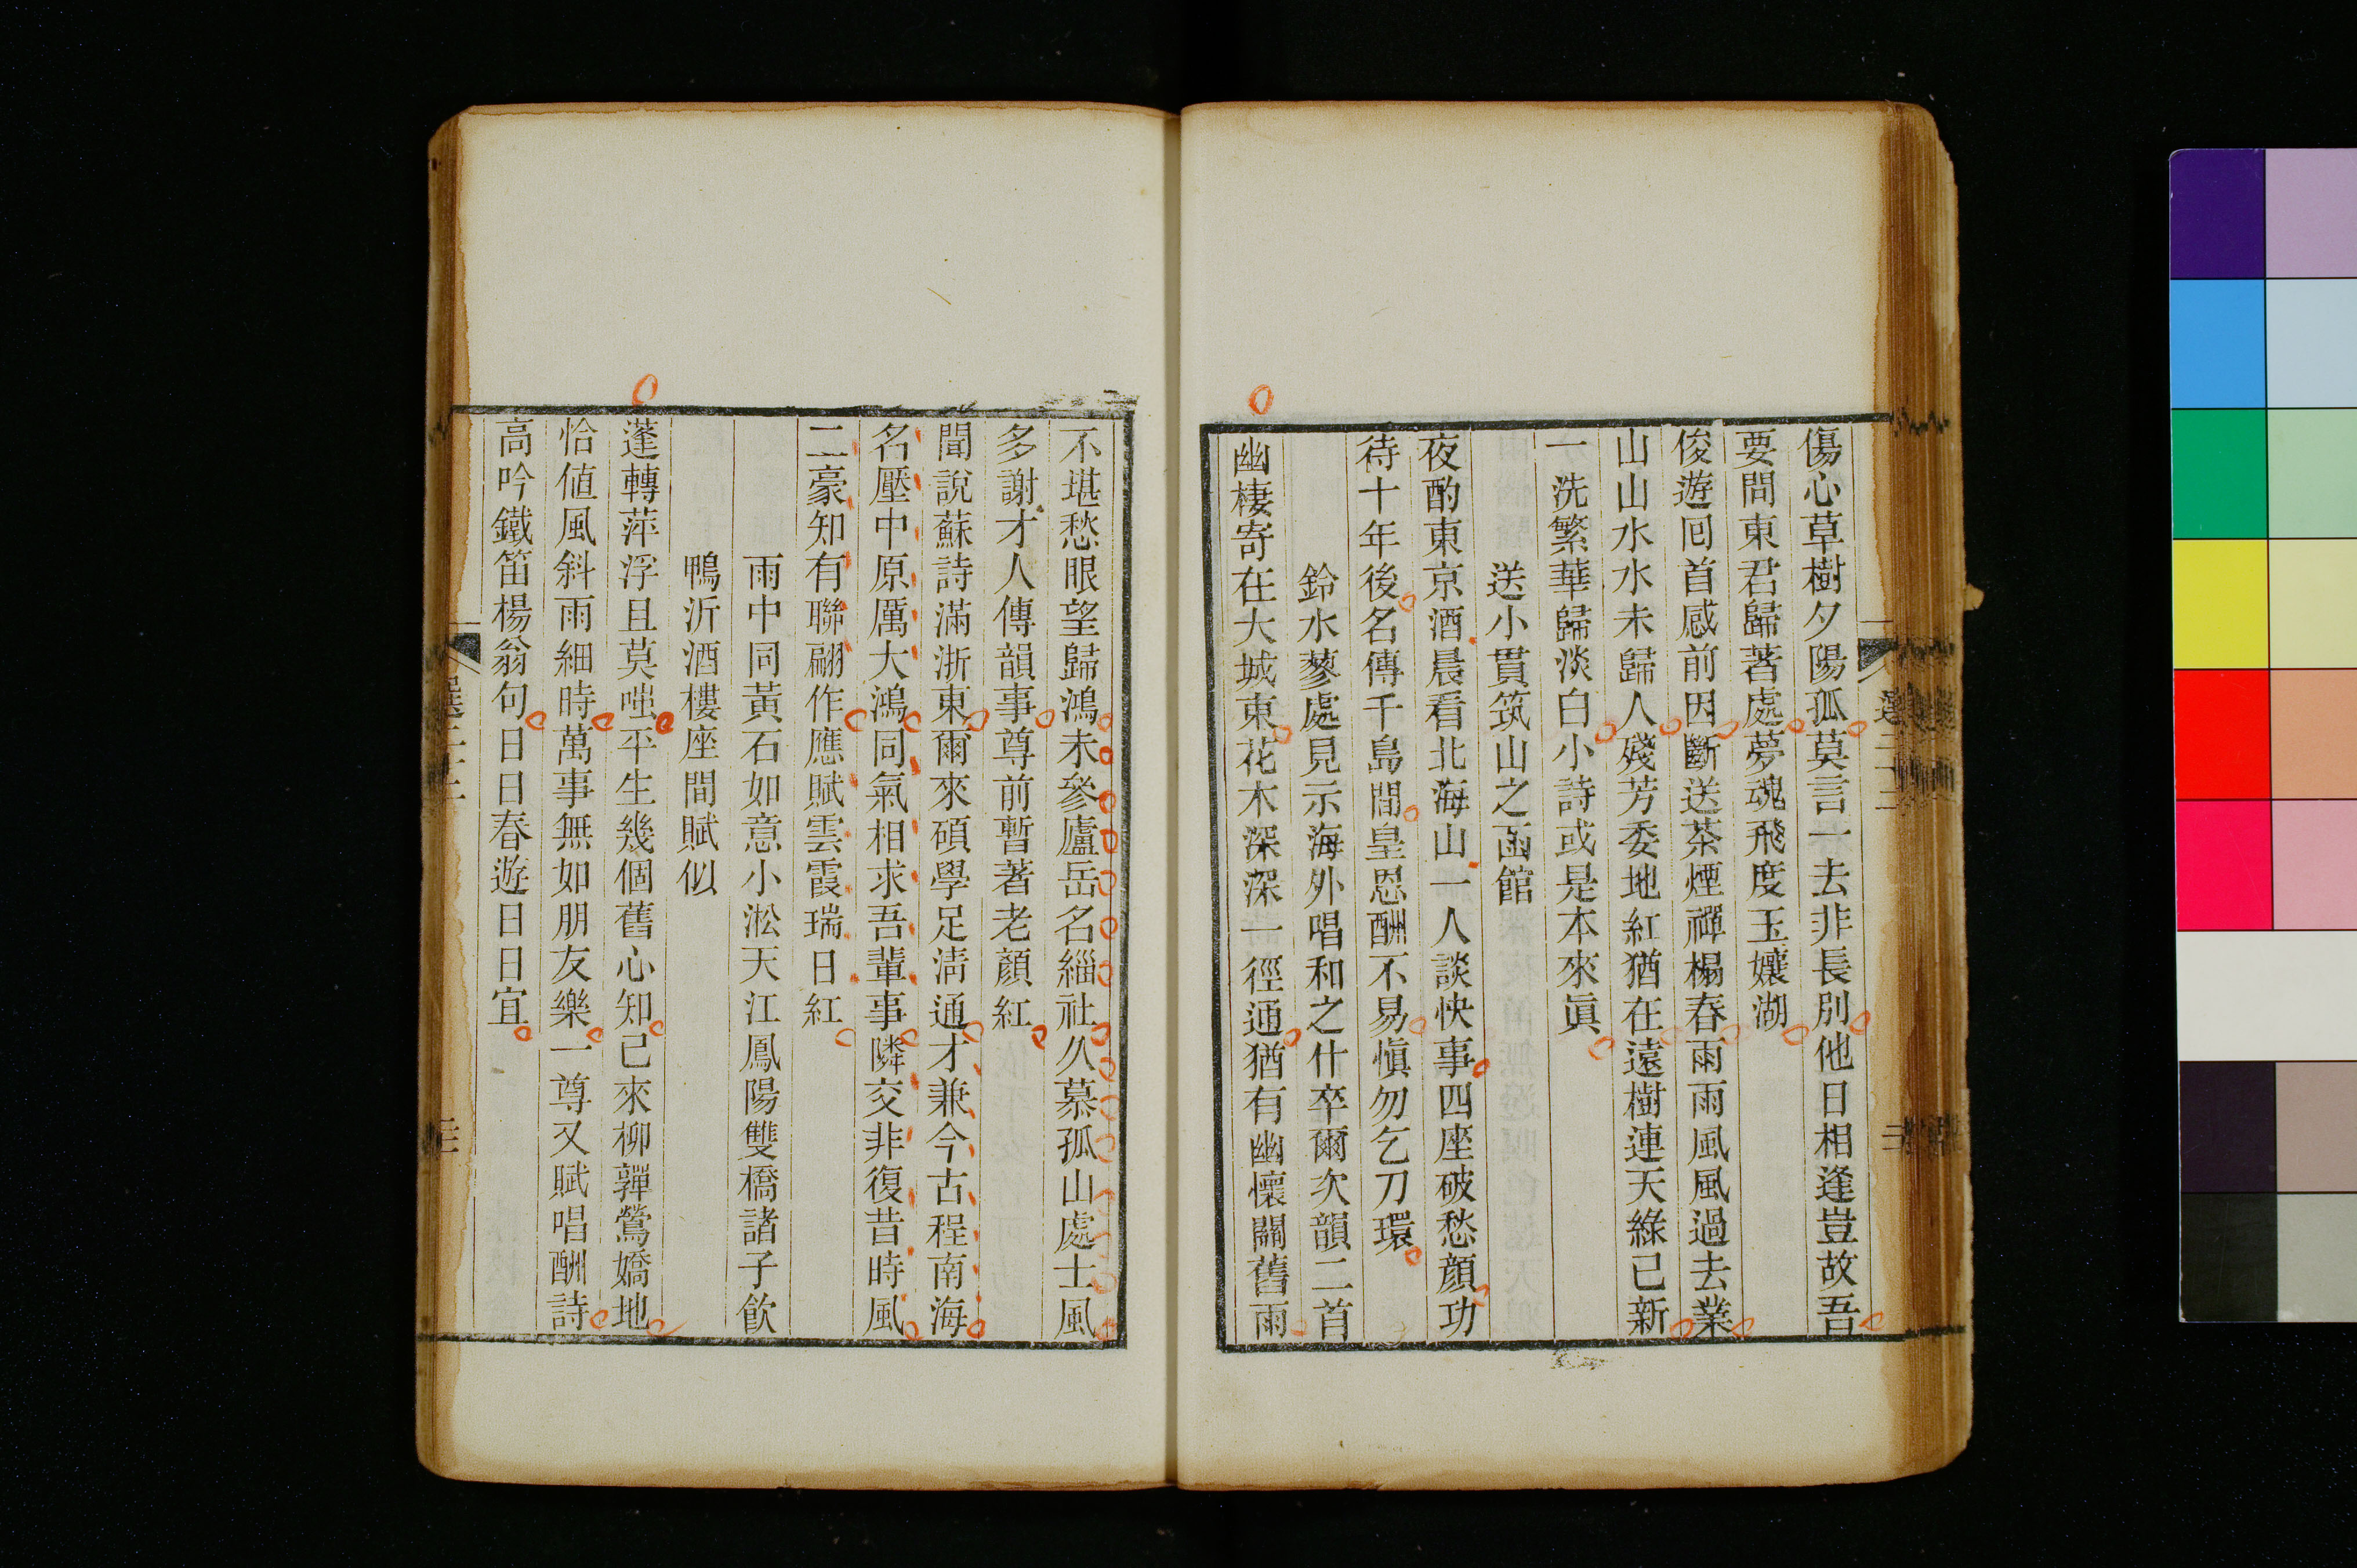 傷心草樹夕陽孤莫言一去非長別他日相逢豈故吾
要問東君歸著處夢魂飛度玉孃湖
俊遊囘首感前因斷送茶煙禪榻春雨雨風風過去業
山山水水未歸人殘芳委地紅猶在遠樹連天綠已新
一洗繁華歸淡白小詩或是本來眞
送小貫筑山之函館
夜酌東京酒晨看北海山一人談快事四座破愁顏功
待十年後名傳千島間皇恩酬不易愼勿乞刀環
鈴水蓼處見示海外唱和之什卒爾次韻二首
幽棲寄在大城東花木深深一徑通猶有幽懷關舊雨
不堪愁眼望歸鴻未參廬岳名緇社久慕孤山處士風
多謝才人傳韻事尊前暫著老顏紅
聞說蘇詩滿浙東爾來碩學足淸通才兼今古程南海
名壓中原厲大鴻同氣相求吾輩事隣交非復昔時風
二豪知有聯翩作應賦雲霞瑞日紅
雨中同黃石如意小淞天江鳳陽雙橋諸子飮
鴨沂酒樓座間賦似
蓬轉萍浮且莫嗤平生幾個舊心知己來柳嚲鶯嬌地
恰値風斜雨細時萬事無如朋友樂一尊又賦唱酬詩
高吟鐵笛楊翁句日日春遊日日宜